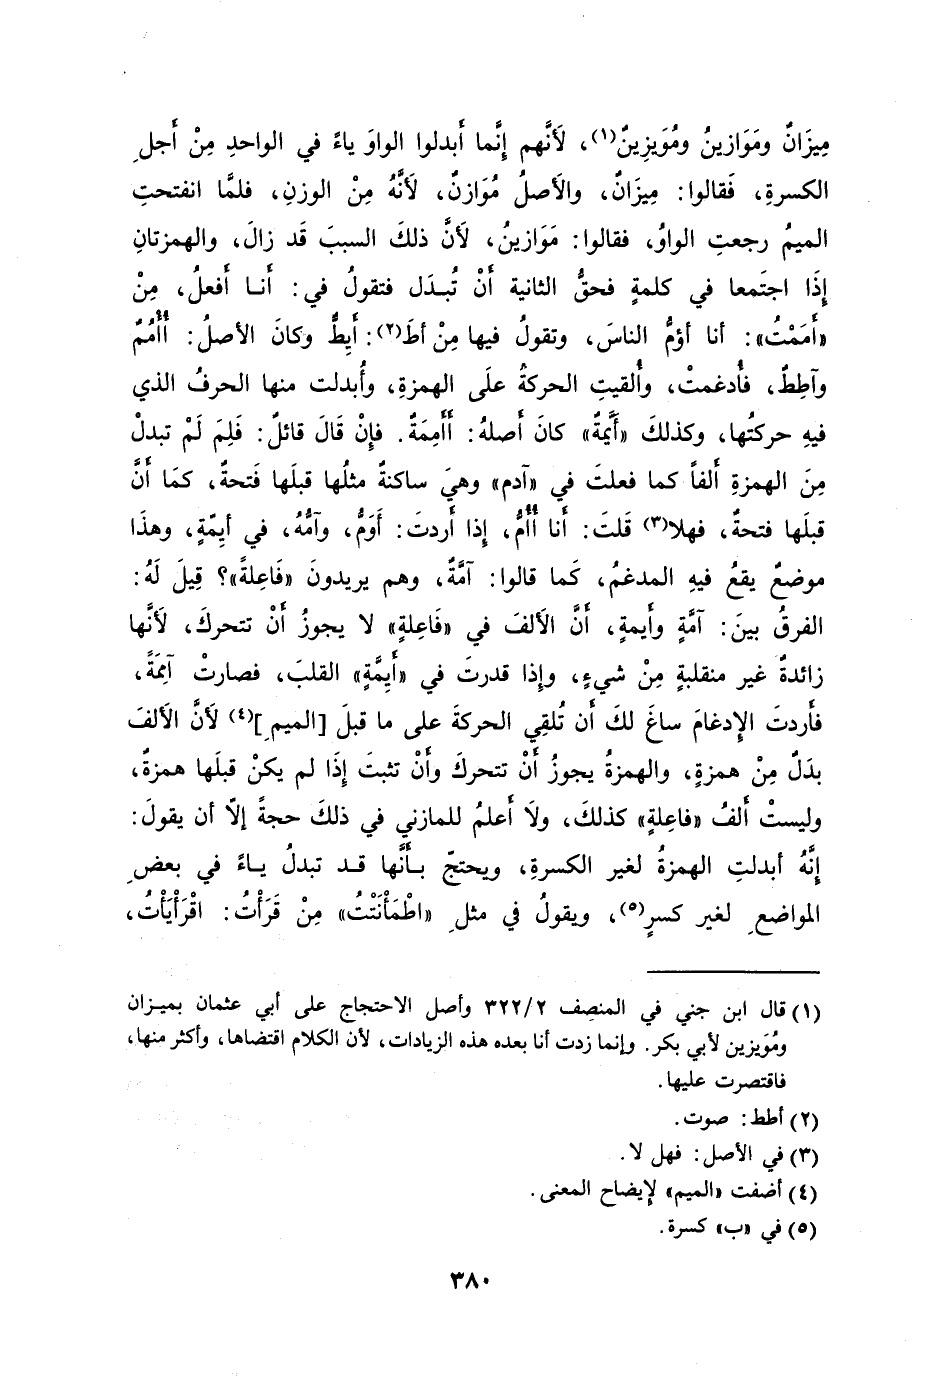 مِيزَانٌ ومَوَازينُ ومُوَيزِينٌ(١)، لَأنَّهم إنَّما أَبدلوا الواوَ ياءً في الواحدِ مِنْ أَجلِ
الكسرةِ، فَقالوا: مِيزَانٌ، والأصلُ مُوَازنٌ، لأنَّهُ مِنْ الوزنِ، فلمَّا انفتحتِ
الميمُ رجعتِ الواوُ، فقالوا: مَوَازينُ، لأنَّ ذلكَ السببَ قَد زالَ، والهمزتانِ
إِذَا اجتَمعا في كلمةٍ فحقُّ الثانية أَنْ تُبـدَل فتقولُ في: أَنـا أَفعلُ، مِنْ
«أَمَمْتُ»: أنا أؤمُّ الناسَ، وتقولُ فيها مِنْ أطَ(٢): أَيِطُّ وكانَ الأصلُ: أُأْمُمُ
وآطِطُ، فأُدغمتْ، وأُلقيتِ الحركةُ علَى الهمزةِ، وأُبدلت منها الحرفُ الذي
فيهِ حركتُها، وكذلكَ «أَيَّمةٌ» كانَ أَصلهُ: أَأْمِمَةٌ. فإِنْ قَالَ قائلٌ: فَلِمَ لَمْ تبدلْ
مِنَ الهمزةِ أَلفاً كما فعلتَ في «آدم» وهيَ ساكنةٌ مثلُها قبلَها فَتحةٌ، كمَا أَنَّ
قبلَها فتحةٌ، فهلا(٣) قَلتَ: أَنا أُأُمُّ، إِذا أَردتَ: أَوَمُّ، وآمُّهُ، في أَيِمّةٍ، وهذَا
موضعٌ يقعُ فيهِ المدغمُ، كَما قالوا: آمَّةٌ، وهم يريدونَ «فَاعِلةً»؟ قِيلَ لَهُ:
الفرقُ بينَ: آمَّةٍ وأَيمةٍ، أَنَّ الأَلفَ في «فَاعِلةٍ» لا يجوزُ أَنْ تتحركَ، لَأنَّها
زائدةٌ غير منقلبةٍ مِنْ شيءٍ، وإِذا قدرتَ في «أَيِمَّةٍ» القلبَ، فصارتْ آمِمَةً،
فأَردتَ الإِدغامَ ساغَ لكَ أَن تُلقِي الحركةَ على ما قبلَ [الميمِ](٤) لأنَّ الأَلفَ
بدَلٌ مِنْ همزةٍ، والهمزةُ يجوزُ أَنْ تتحركَ وأَنْ تثبتَ إِذَا لم يكنْ قبلَها همزةٌ،
وليستْ أَلفُ «فاعِلةٍ» كذلكَ، ولَا أَعلمُ للمازني في ذلكَ حجةً إلاّ أن يقولَ:
إِنَّهُ أبدلتِ الهمزةُ لغير الكسرةِ، ويحتجّ بـأَنَّها قـد تبدلُ يـاءً في بعضِ
المواضعِ لغير كسرٍ(٥)، ويقولُ في مثلِ «اطْمَأْنَنْتُ» مِنْ قَرَأْتُ: اقْرَأْيَأْتُ،
(١) قال ابن جني في المنصف ٣٢٢/٢ وأصل الاحتجاج على أبي عثمان بميـزان
ومُوَيزين لأبي بكر. وإنما زدت أنا بعده هذه الزيادات، لأن الكلام اقتضاها، وأكثر منها،
فاقتصرت عليها.
(٢) أطط: صوت.
(٣) في الأصل: فهل لا.
(٤) أضفت «الميم» لإيضاح المعنى.
(٥) في «ب» كسرة.
٣٨٠